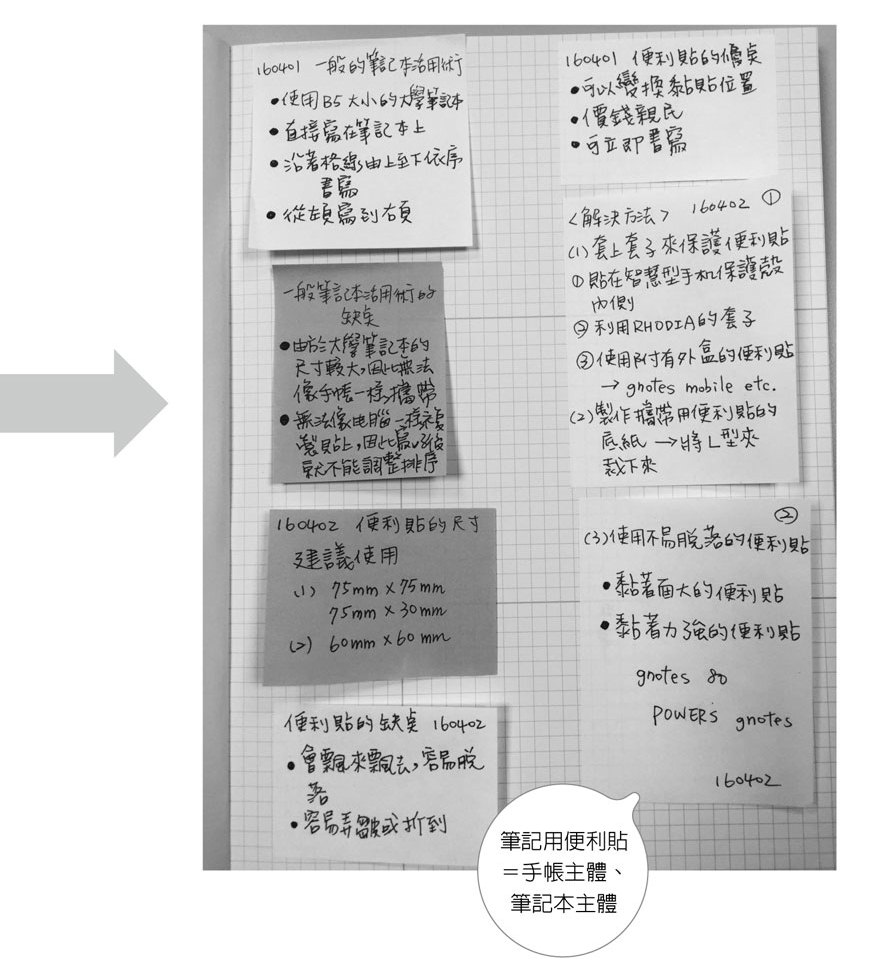 160401 一般的筆記本活用術
•使用B5大小的大學筆記本
•直接寫在筆記本上
•沿著格線,由上至下依序
書寫
•從左頁寫到右頁
一般筆記本活用術的
缺點
•由於大學筆記本的
尺寸較大,因此無法
像手帳一樣,攜帶
•無法像电腦一樣複
製貼上,因此寫以後
就不能調整排序
160402 便利貼的尺寸
建議使用
(1) 75mm×75mm
75mm×30mm
(2) 60mm×60mm
便利貼的缺點 160402
•會飄來飄去,容易脫
落
•容易弄皺或折到
160401 便利貼的優點
•可以變換黏貼位置
•價錢親民
•可立即書寫
<解決方法> 160402 ①
(1)套上套子來保護便利貼
①貼在智慧型手机保護殼
內側
②利用RHODIA的套子
③使用附有外盒的便利貼
→ gnotes mobile etc.
(2)製作攜帶用便利貼的
底紙→將L型夾
裁下來
②
(3)使用不易脫落的便利貼
•黏著面大的便利貼
•黏著力強的便利貼
gnotes 80
POWER's gnotes
160402
筆記用便利貼
＝手帳主體、
筆記本主體